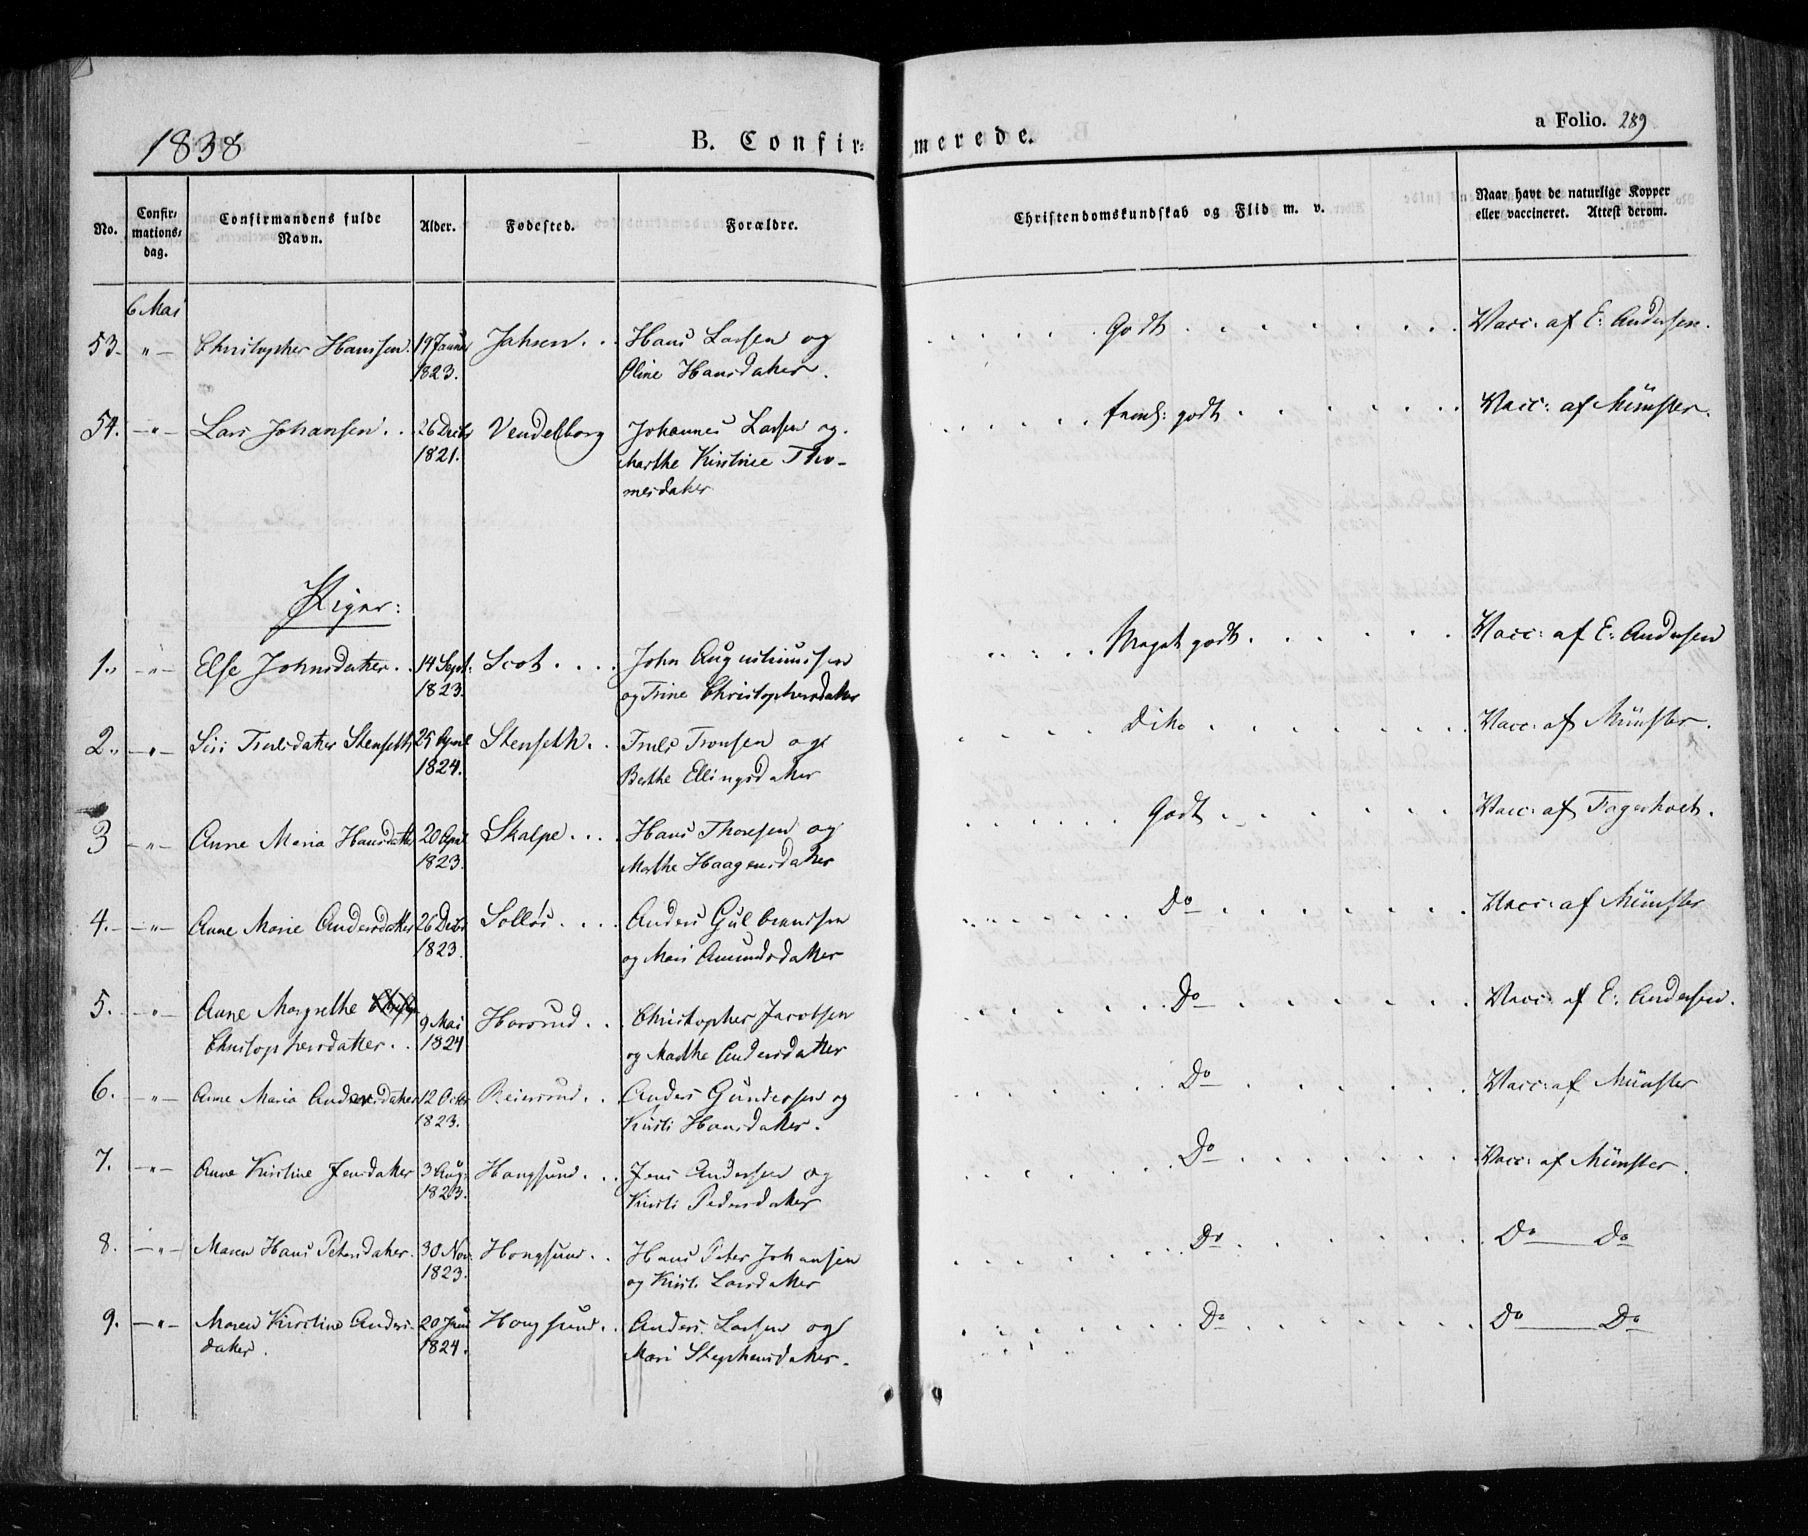 1838
B. Confirmerede.
a Folio. 289
No.
Confirmationsdag.
Confirmandens fulde Navn.
Alder.
Fødested.
Forældre.
Christendomskundskab og Flid m. v.
Naar havt de naturlige Kopper eller vaccineret. Attest derom.
6 Mai
53. -"- Christopher Hanssen. 19 Januar Jahren . . Hans Larsen og . . . . Godt . . . . . . . Vacc: af E: Andersen.
1823. Oline Hansdatter.
54. -"- Lars Johansen . . 26 Decbr Vendelborg Johannes Larsen og . . . . . . godt . . . . . . Vacc: af Münster.
1821. Marthe Kirstine Tho-
mesdatter
Piger:
1. -"- Else Johnsdatter . . 14 Sept: Scot . . . . John Augustinussen . . . . . Meget godt . . . . . Vacc: af E: Andersen
1823. og Trine Christophersdatter
2. -"- Siri Truelsdatter Stenseth 25 April Stenseth . . Truels Tronsen og . . . . Dito . . . . . . . Vacc: af Münster.
1824. Berthe Ellingsdatter
3 -"- Anne Maria Hansdatter 20 April Skalpe . . . Hans Thoresen og . . . . . . Godt . . . . . . Vacc: af Fagerholt.
1823. Marthe Haagensdatter
4. -"- Anne Marie Andersdatter 26 Decbr Solløs . . . . Anders Gulbrandsen . . . . . . Do . . . . . . . Vacc: af Münster
1823. og Mari Amundsdatter
5. -"- Anne Margrethe 9 Mai Horsrud . . Christopher Jacobsen . . . . . . Do . . . . . . Vacc: af E: Andersen.
Christophersdatter . . 1824 og Marthe Andersdatter
6. -"- Anne Maria Andersdatter 12 Octbr Reiersrud . . Anders Gundersen og . . . . . . Do . . . . . . Vacc: af Münster
1823. Kirsti Hansdatter.
7. -"- Anne Kirstine Jensdatter 3 Aug: Hougsund . . . Jens Andersen og . . . . . Do . . . . . . Vacc: af Münster.
1823. Kirsti Pedersdatter
8. -"- Maren Hans Petersdatter. 30 Nov. Hougsund . . Hans Peter Johansen . . . . . . Do . . . . . . . Do Do
1823. og Kirsti Larsdatter
9. -"- Maren Kirstine Anders- 20 Juni Hougsund . . Anders Larsen og . . . . . . Do . . . . . . . Do Do
datter. 1824. Mari Stephensdatter.